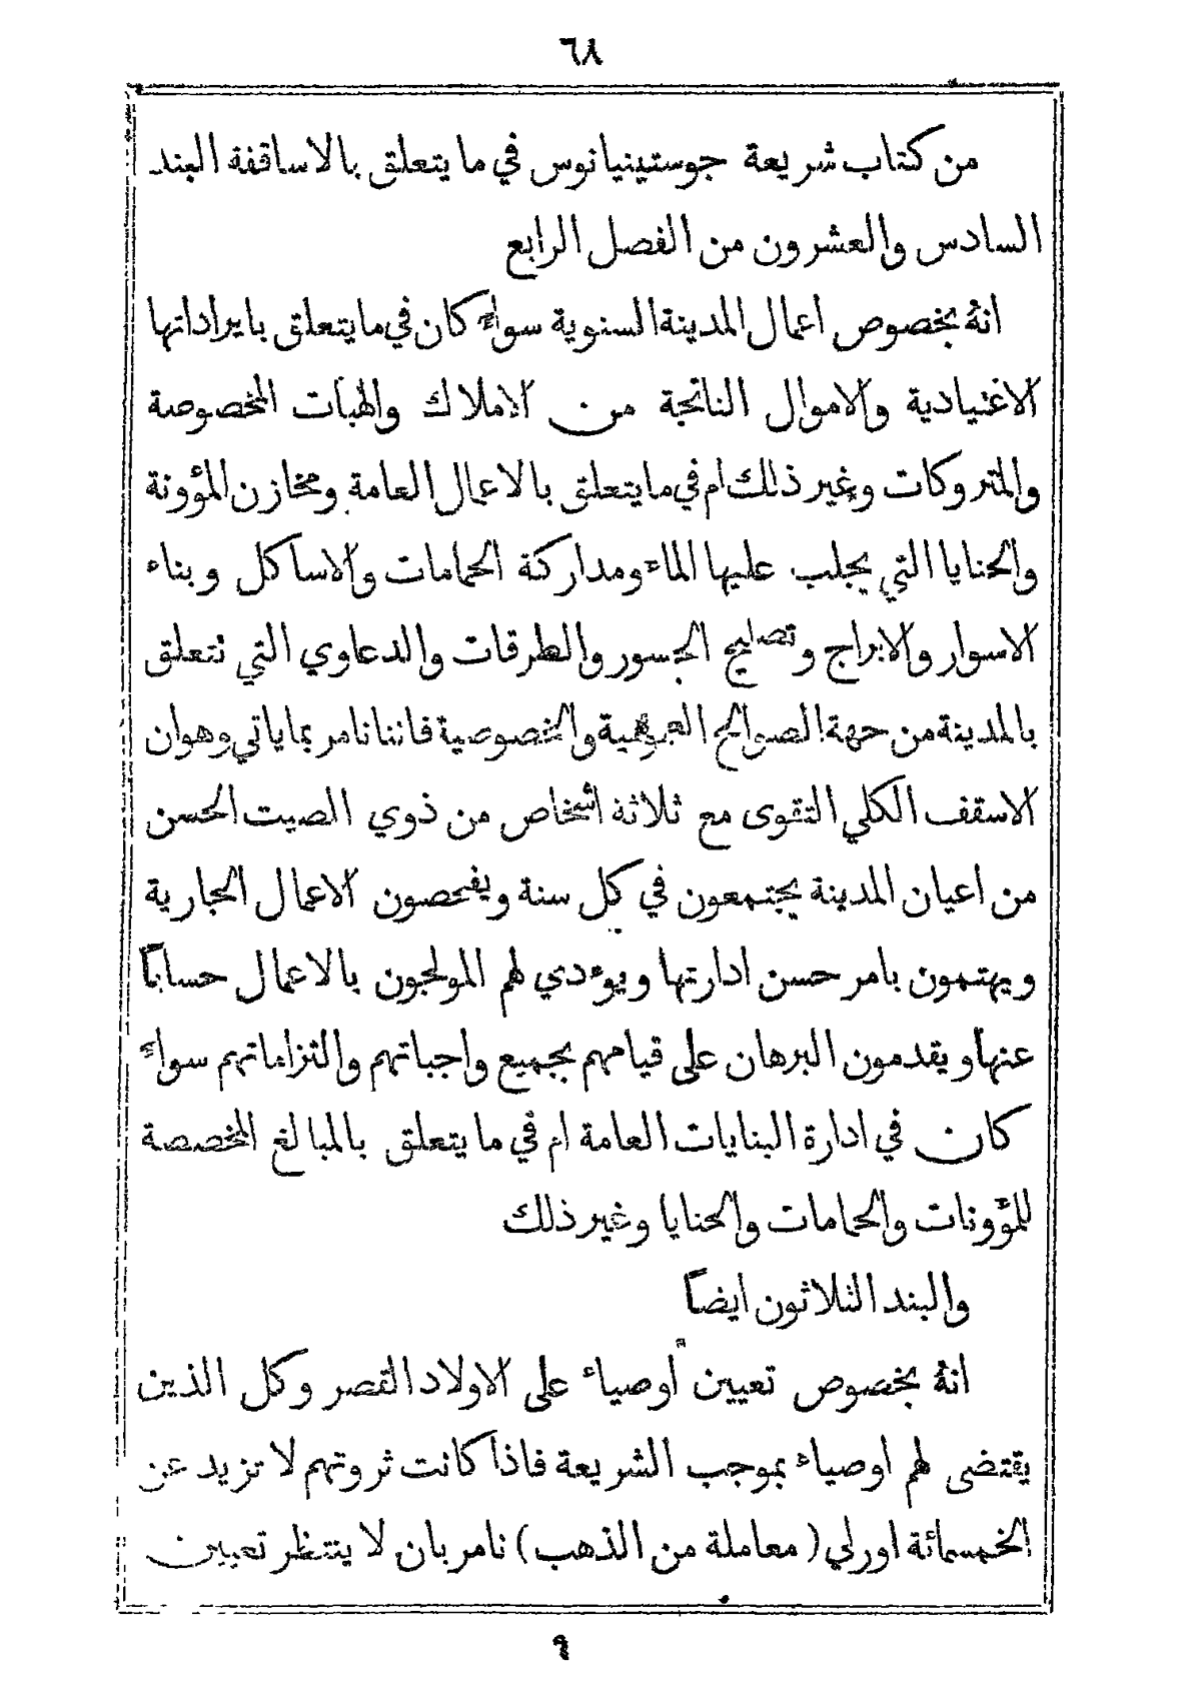 ٦٨
من كتاب شريعة جوستينيانوس في ما يتعلق بالاساقفة البند
السادس والعشرون من الفصل الرابع
انهُ بخصوص اعمال المدينة السنوية سواءٌ كان في ما يتعلق بايراداتها
الاعتيادية والاموال الناتجة من الاملاك والهبات المخصوصة
والمتروكات وغير ذلك ام في ما يتعلق بالاعمال العامة ومخازن المؤونة
والحنايا التي يجلب عليها الماء ومداركة الحمامات والاساكل وبناء
الاسوار والابراج وتصليح الجسور والطرقات والدعاوي التي تتعلق
بالمدينة من جهة الصوالح العمومية والخصوصية فاننا نامر بما ياتي وهو ان
الاسقف الكلي التقوى مع ثلاثة اشخاص من ذوي الصيت الحسن
من اعيان المدينة يجتمعون في كل سنة ويفحصون الاعمال الجارية
ويهتمون بامر حسن ادارتها ويؤدي لهم المولجون بالاعمال حساباً
عنها ويقدمون البرهان على قيامهم بجميع واجباتهم والتزاماتهم سواءٌ
كان في ادارة البنايات العامة ام في ما يتعلق بالمبالغ المخصصة
للمؤونات والحمامات والحنايا وغير ذلك
والبند الثلاثون ايضاً
انهُ بخصوص تعيين أوصياء على الاولاد القصر وكل الذين
يقتضى لهم اوصياء بموجب الشريعة فاذا كانت ثروتهم لا تزيد عن
الخمسمائة اورلي (معاملة من الذهب) نامر بان لا ينتظر تعيين
٩